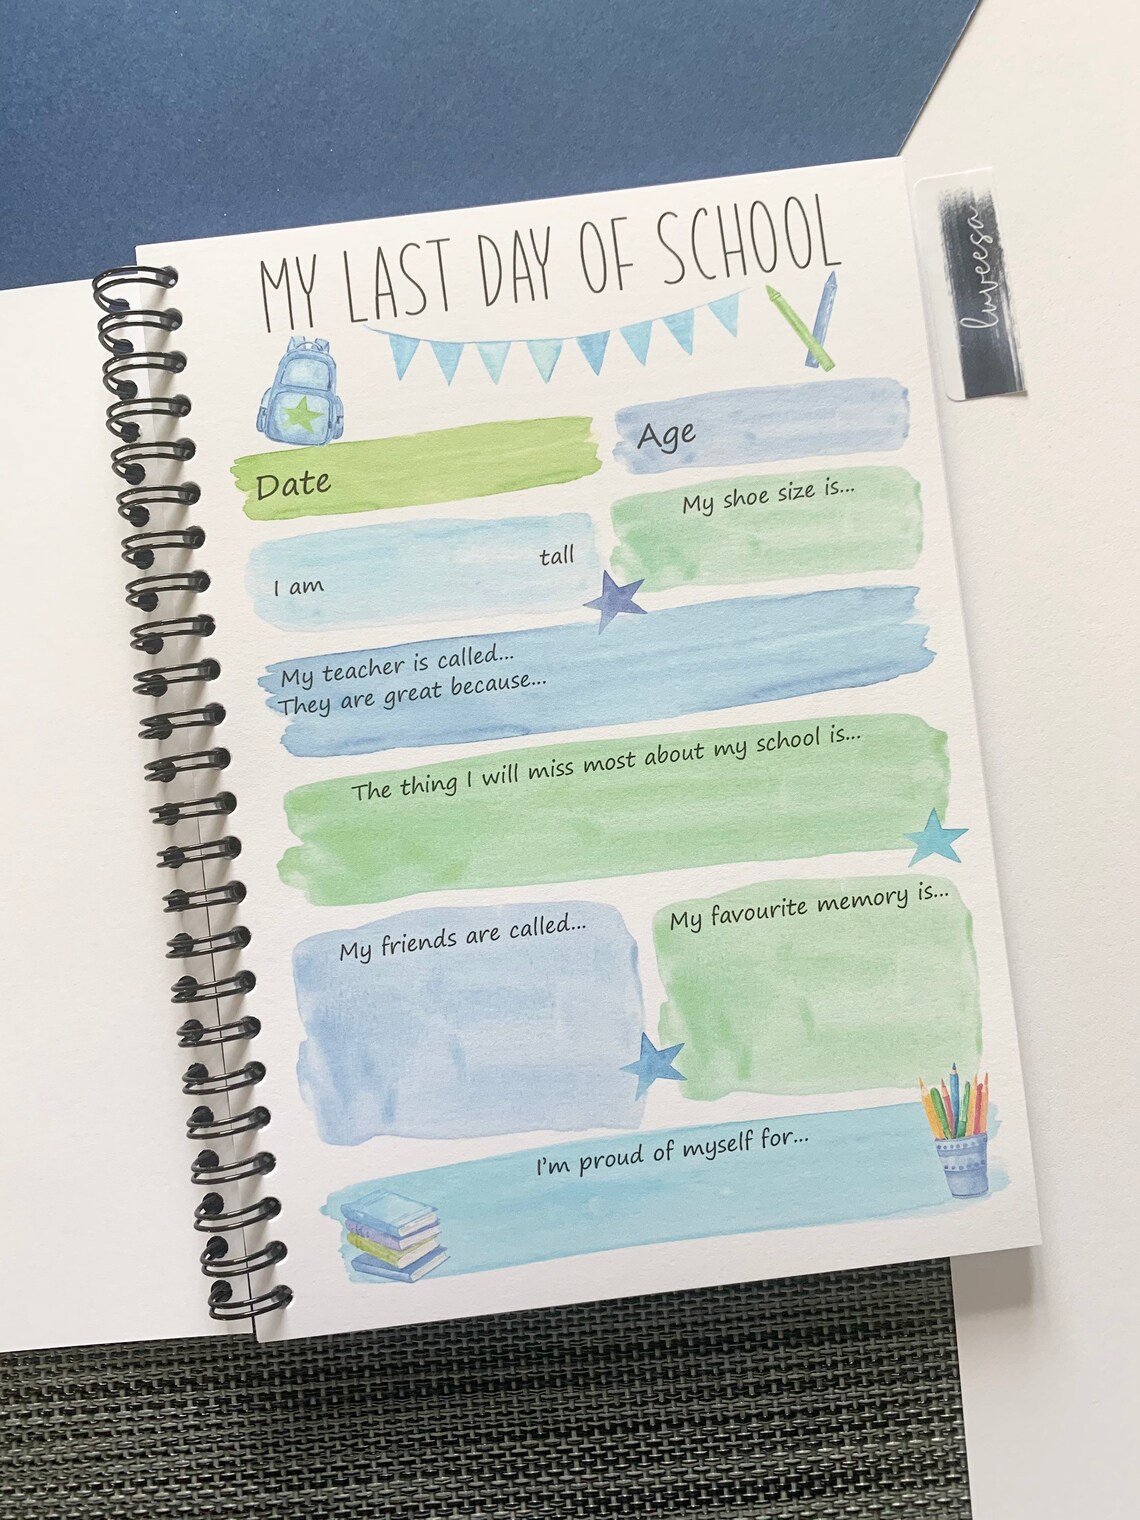 MY LAST DAY OF SCHOOL
luveesa
Date
Age
I am
tall
My shoe size is...
My teacher is called...
They are great because...
The thing I will miss most about my school is...
My friends are called...
My favourite memory is...
I'm proud of myself for...